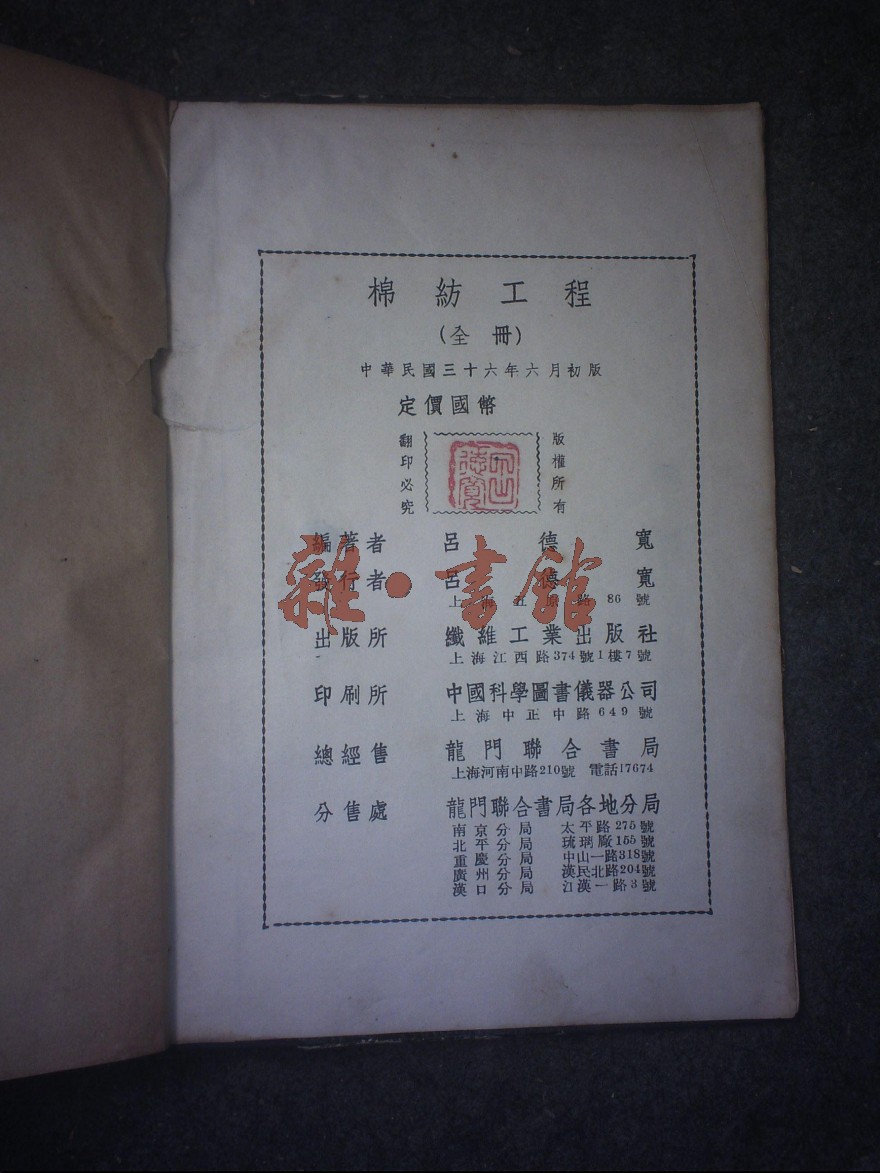 棉紡工程
(全冊)
中華民國三十六年六月初版
定價國幣
版權所有
翻印必究
編著者 呂德寬
發行者 呂德寬
上海五原路86號
出版所 纖維工業出版社
上海江西路374號1樓7號
印刷所 中國科學圖書儀器公司
上海中正中路649號
總經售 龍門聯合書局
上海河南中路210號 電話17674
分售處 龍門聯合書局各地分局
南京分局 太平路275號
北平分局 琉璃廠155號
重慶分局 中山一路318號
廣州分局 漢民北路204號
漢口分局 江漢一路3號
雜·書館